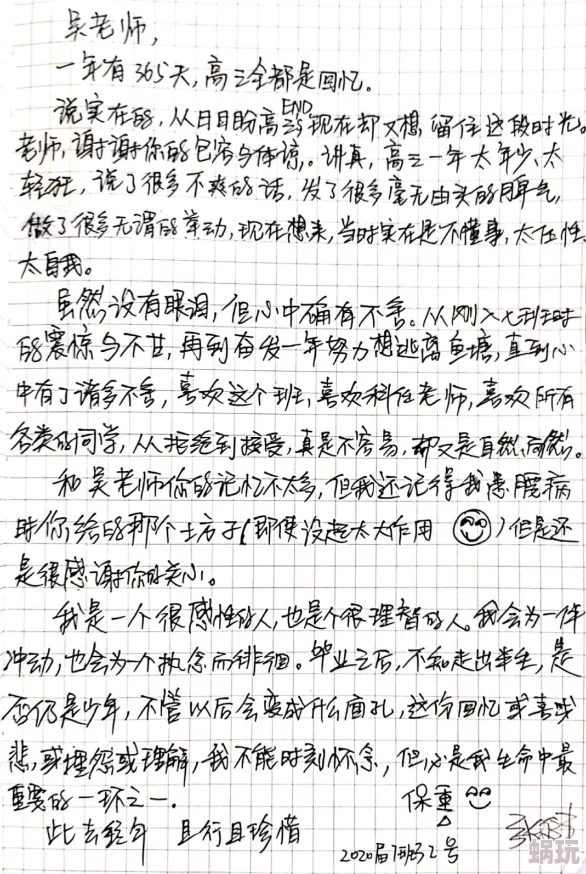 吴老师,
一年有365天,高三全都是回忆。
说实在的,从日日盼高三END到现在却又想留住这段时光。
老师,谢谢你的包容与体谅。讲真,高三一年太年少、太
轻狂,说了很多不爽的话,发了很多毫无由头的脾气,
做了很多无谓的举动,现在想来,当时实在是不懂事,太任性、
太自我。
虽然没有眼泪,但心中确有不舍。从刚入七班时
的震惊与不甘,再到奋发一年努力想逃离鱼塘,直到心
中有了诸多不舍,喜欢这个班,喜欢科任老师,喜欢所有
各类的同学,从拒绝到接受,真是不容易,却又是自然而然。
和吴老师你的记忆不太多,但我还记得我患腰病
时你给的那个土方子(即使没起太大作用 )但是还
是很感谢你的关心。
我是一个很感性的人,也是个很理智的人。我会为一件
冲动,也会为一个执念而徘徊。毕业之后,不知走出半生,是
否仍是少年,不管以后会变成什么面孔,这份回忆或喜或
悲,或埋怨或理解,我不能时刻怀念,但必是我生命中最
重要的一环之一.
保重
此去经年 且行且珍惜
2020届7班32号
蜗玩